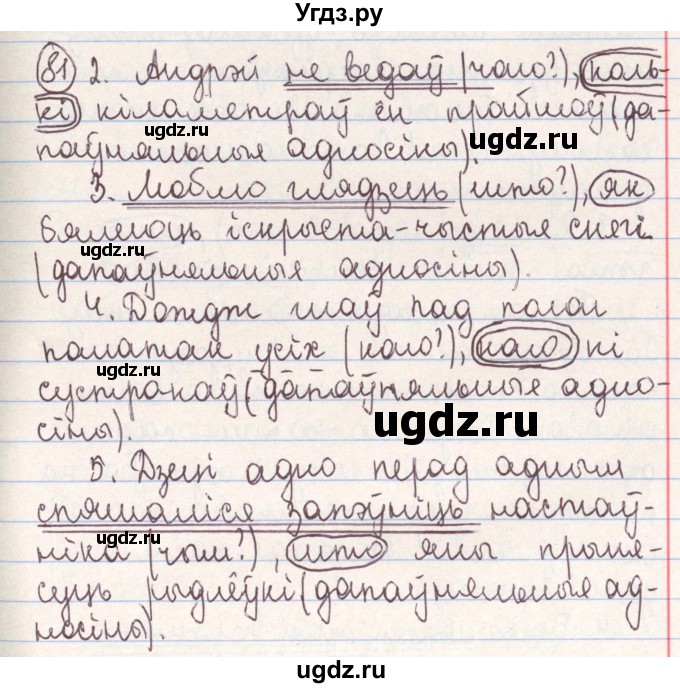 Угдз.ру
81 2. Андрэй не ведаў (чаго?), коль-
кі кіламетраў ён прайшоў (да-
ugdz.ru
паўняльныя адносіны).
3. Люблю глядзець (што?), як
бялеюць іскрыста-чыстыя снягі
ugdz.ru
(дапаўняльныя адносіны).
4. Дождж ішоў пад полаг
паматак усіх (каго?), каго ні
ugdz.ru
сустракаў (дапаўняльныя адно-
ugdz.ru
сіны).
5. Дзеці адно перад адным
спяшаліся запэўніць настаў-
ugdz.ru
ніка (чым?), што яны прыня-
суць рыдлёўкі (дапаўняльныя ад-
носіны).
ugdz.ru
ugdz.ru